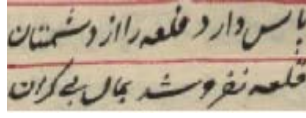 پاس دارد قلعه را از دشمنان
قلعه نفروشد بمال بی کران